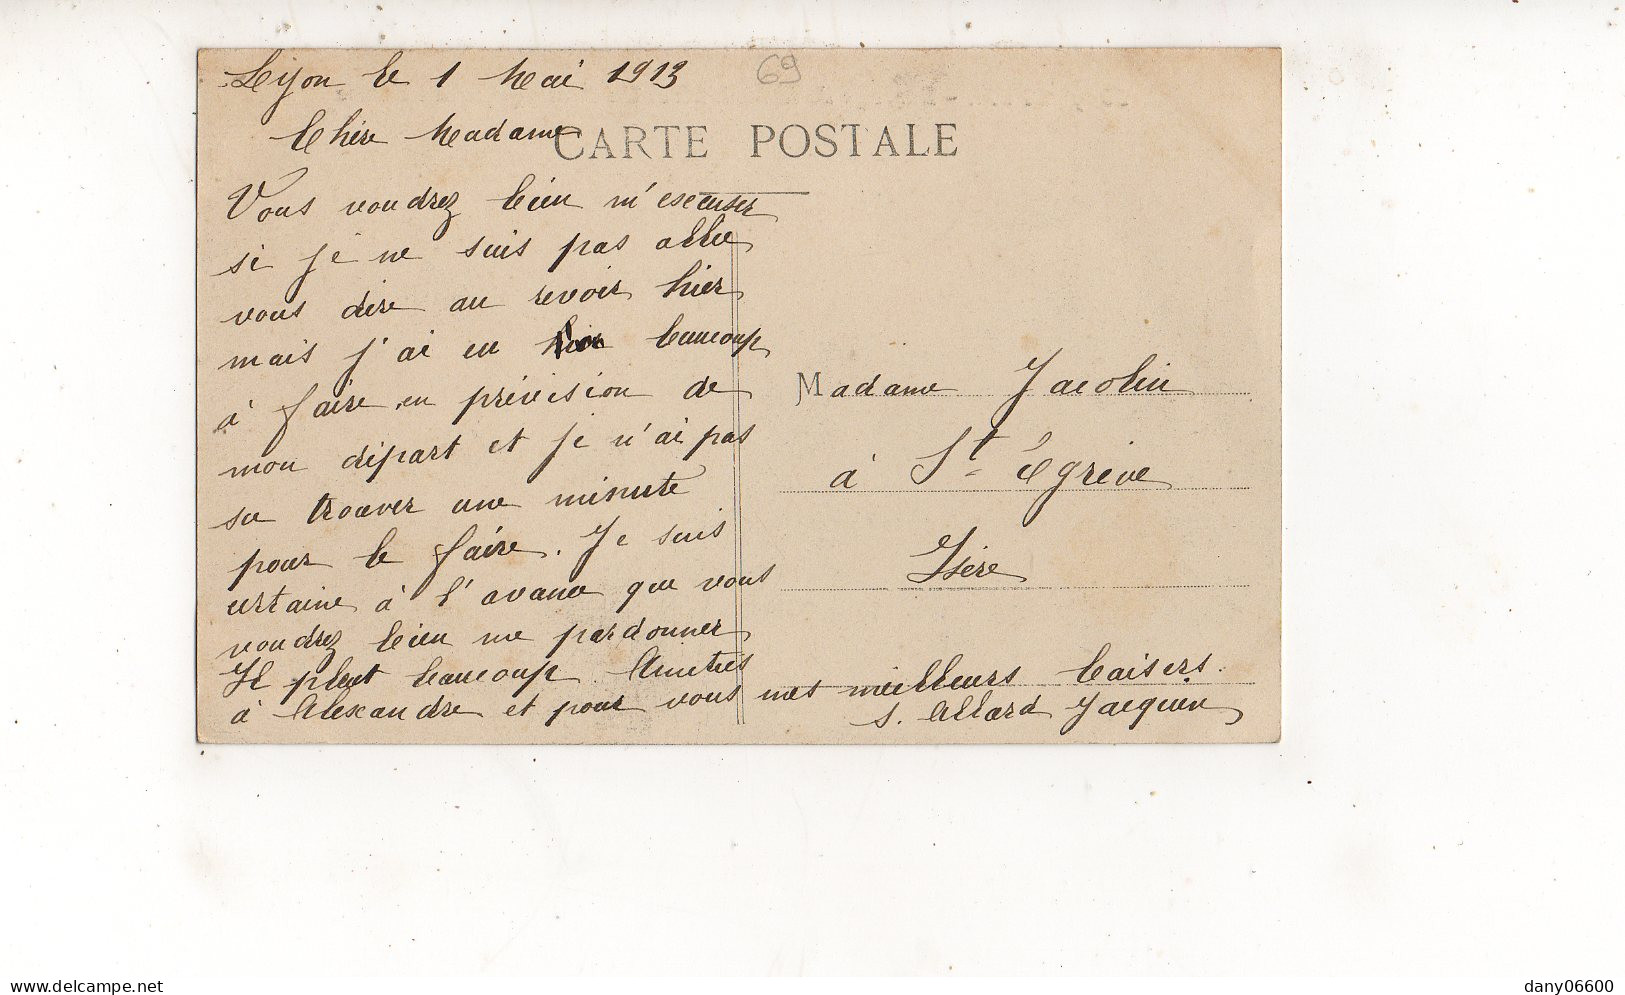 Lyon le 1 Mai 1913
69
Chère Madame
CARTE POSTALE
Vous voudrez bien m'excuser
si je ne suis pas allée
vous dire au revoir hier
mais j'ai eu beaucoup
à faire en prévision de
mon départ et je n'ai pas
su trouver une minute
pour le faire. Je suis
certaine à l'avance que vous
voudrez bien me pardonner
Il pleut beaucoup. Amitiés
à Alexandre et pour vous mes meilleurs baisers.
S. Allard Jacquin
Madame Jacolin
à St Égrève
Isère
delcampe.net
dany06600